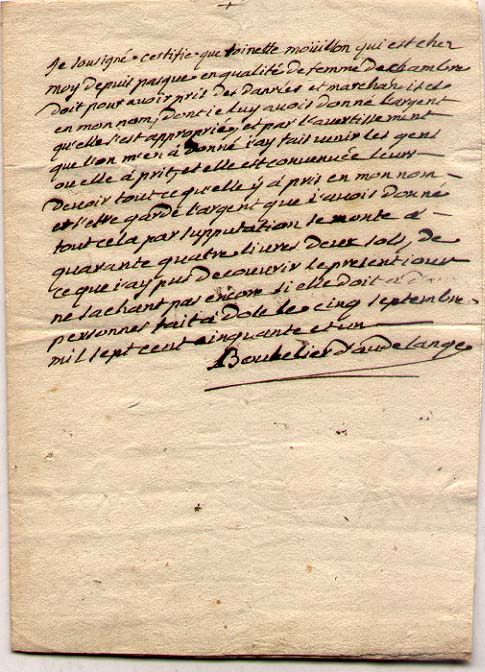 Je sousigné certifie que toinette mouillon qui est cher
moy depuis pasque en qualité de femme de chambre
doit pour avoir pris des danrées et marchandises
en mon nom, dont ie luy avois donné l'argent
qu'elle s'est appropriée, et par l'avertissement
que l'on m'en à donné i'ay fait venir les gens
ou elle à prit, et elle est convenuee leurs
devoir tout ce qu'elle y à pris en mon nom
et s'etre gardé l'argent que i'avois donné
tout cela par supputation se monte à
quarante quatre livres deux sols, de
ce que i'ay pus decouvrir le present iour
ne sachant pas encore si elle doit à
personnes fait à Dole le cinq septembre
mil sept cent cinquante et un
Bouhelier d'audelange